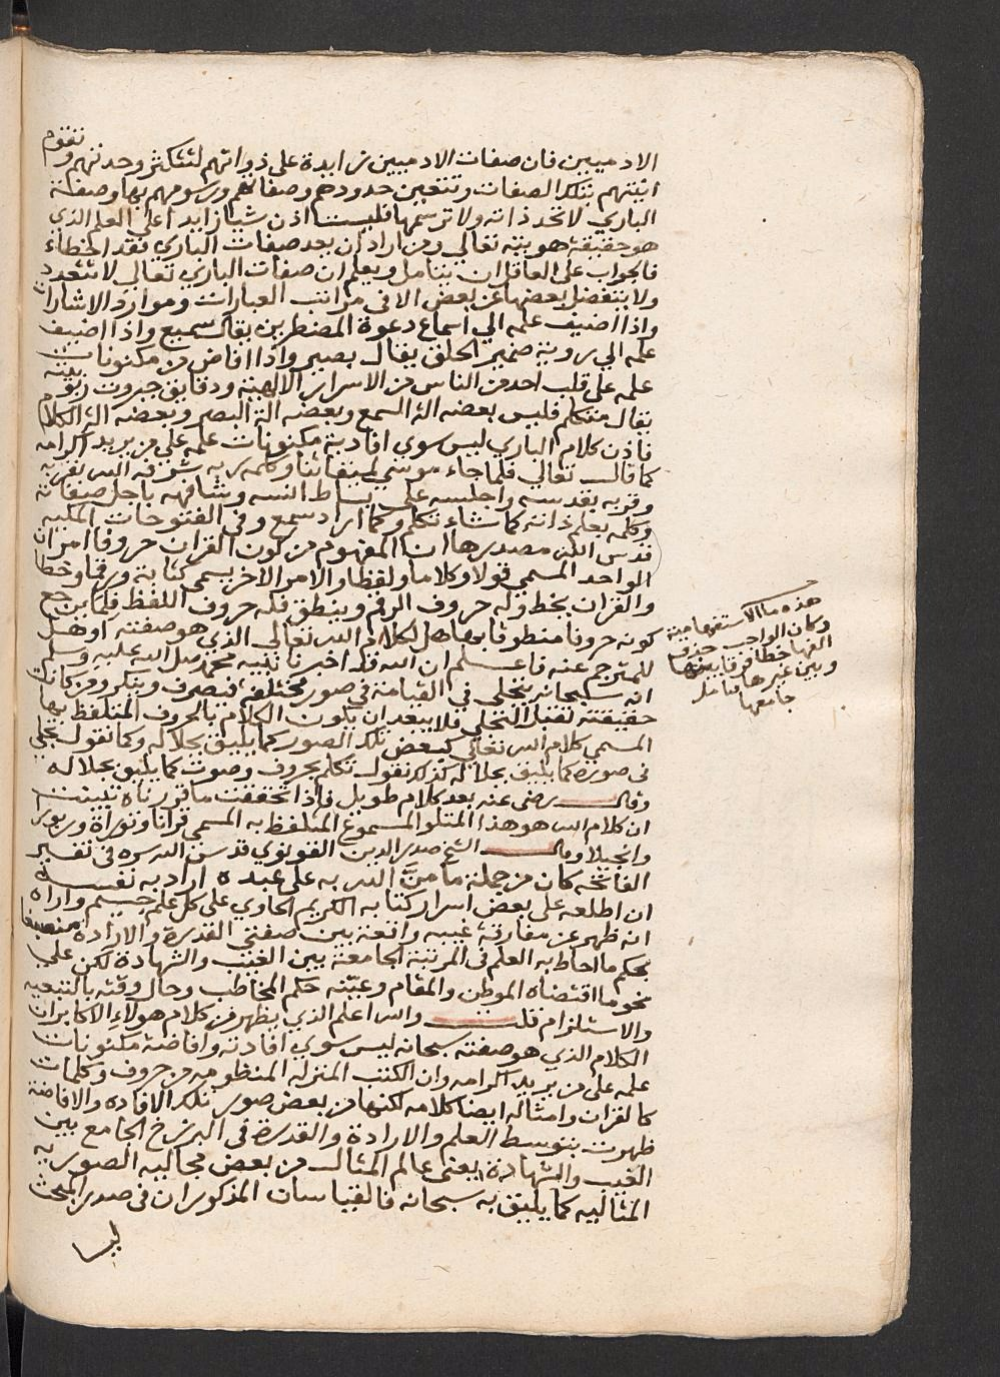 الادميين فان صفات الادميين زايدة على ذواتهم لتتكثر وحدتهم وتقوم
انيتهم بتلك الصفات وتتعين حدودهم وصفاتهم ورسومهم بها وصفة
الباري لا تحد ذاته ولا ترسمها فليست اذن شيا زايدا على العلم الذي
هو حقيقة هويته تعالى ومن اراد ان يعد صفات الباري فقد اخطاء
فالجواب على العاقل ان يتامل ويعلم ان صفات الباري تعالى لا تتعدد
ولا ينفصل بعضها عن بعض الا في مراتب العبارات وموارد الاشارات
واذا اضيف علمه الي اسماع دعوة المضطرين يقال سميع واذا اضيف
علمه الي روية ضمير الخلق يقال بصير واذا افاض من مكنونات
علمه على قلب احد من الناس من الاسرار الالهية ودقايق جبروت ربوبيته
يقال متكلم فليس بعضه الة السمع وبعضه الة البصر وبعضه الة الكلام
فاذن كلام الباري ليس سوي افادية مكنونات علمه علي من يريد اكرامه
كما قال تعالي فلما جاء موسي لميقاتنا وكلمه ربه شرفه الله بقربه
وقربه بقدسه واجلسه على بساط انسه وشافهه باجل صفاته
وكلمه بعلم ذاته كما شاء تكلم وكما اراد سمع وفي الفتوحات المكية
قدس الله مصدرها ان المفهوم من كون القران حروفا امران
الواحد المسمي قولا وكلاما ولفظا والامر الاخر يسمى كتابة ورقما وخطا
والقران يخط وله حروف الرقم وينطق فله حروف اللفظ فلما يرجع
كونه حروفا منطوقا بها هل لكلام الله تعالى الذي هو صفته او هل
للمترجم عنه فاعلم ان الله قد اخبرنا نبيه محمد صلى الله عليه وسلم
انه سبحانه يتجلى في القيامة في صور مختلفة فيعرف وينكر ومن كانت
حقيقته تقبل التجلي فلا يبعد ان يكون الكلام بالحروف المتلفظ بها
المسمي كلام الله تعالى كبعض تلك الصور كما يليق بجلاله وكما نقول تجلى
في صورة كما يليق بجلاله كذلك نقول تكلم بحروف وصوت كما يليق بجلاله
وقال رضى عنه بعد كلام طويل فاذا تحققت ما قررناه تبينت
ان كلام الله هو هذا المتلو المسموع المتلفظ به المسمى قرانا وتوراة وزبور
وانجيلا وقال الشيخ صدر الدين القونوي قدس الله سره في تفسير
الفاتحه كان من جملة ما منَّ الله به على عبده اراد به نفسه
ان اطلعه على بعض اسرار كتابه الكريم الحاوي على كل علم جسيم واراه
انه ظهر عن مقارعة غيبية واقعة بين صفتي القدرة والارادة منصبغا
بحكم ما احاط به العلم في المرتبة الجامعة بين الغيب والشهادة لكن علي
نحو ما اقتضاه الموطن والمقام وعيّنه حكم المخاطب وحاله ووقته بالتبعيه
والاستلزام قلت والله اعلم الذي يظهر من كلام هولاء الاكابر ان
الكلام الذي هو صفته سبحانه ليس سوي افادته وافاضة مكنونات
علمه على من يريد اكرامه وان الكتب المنزله المنظومه من حروف وكلمات
كالقران وامثاله ايضا كلامه لكنها من بعض صور تلك الافاده والافاضة
ظهرت بتوسط العلم والارادة والقدرة في البرزخ الجامع بين
الغيب والشهادة يعني عالم المثال من بعض مجاليه الصوريه
المثاليه كما يليق به سبحانه فالقياسات المذكوران في صدر المبحث
ليسا
هذه ما الاستفهامية
وكان الواجب حذف
الفها خطا فرقا بينها
وبين غيرها تامل
جامعها